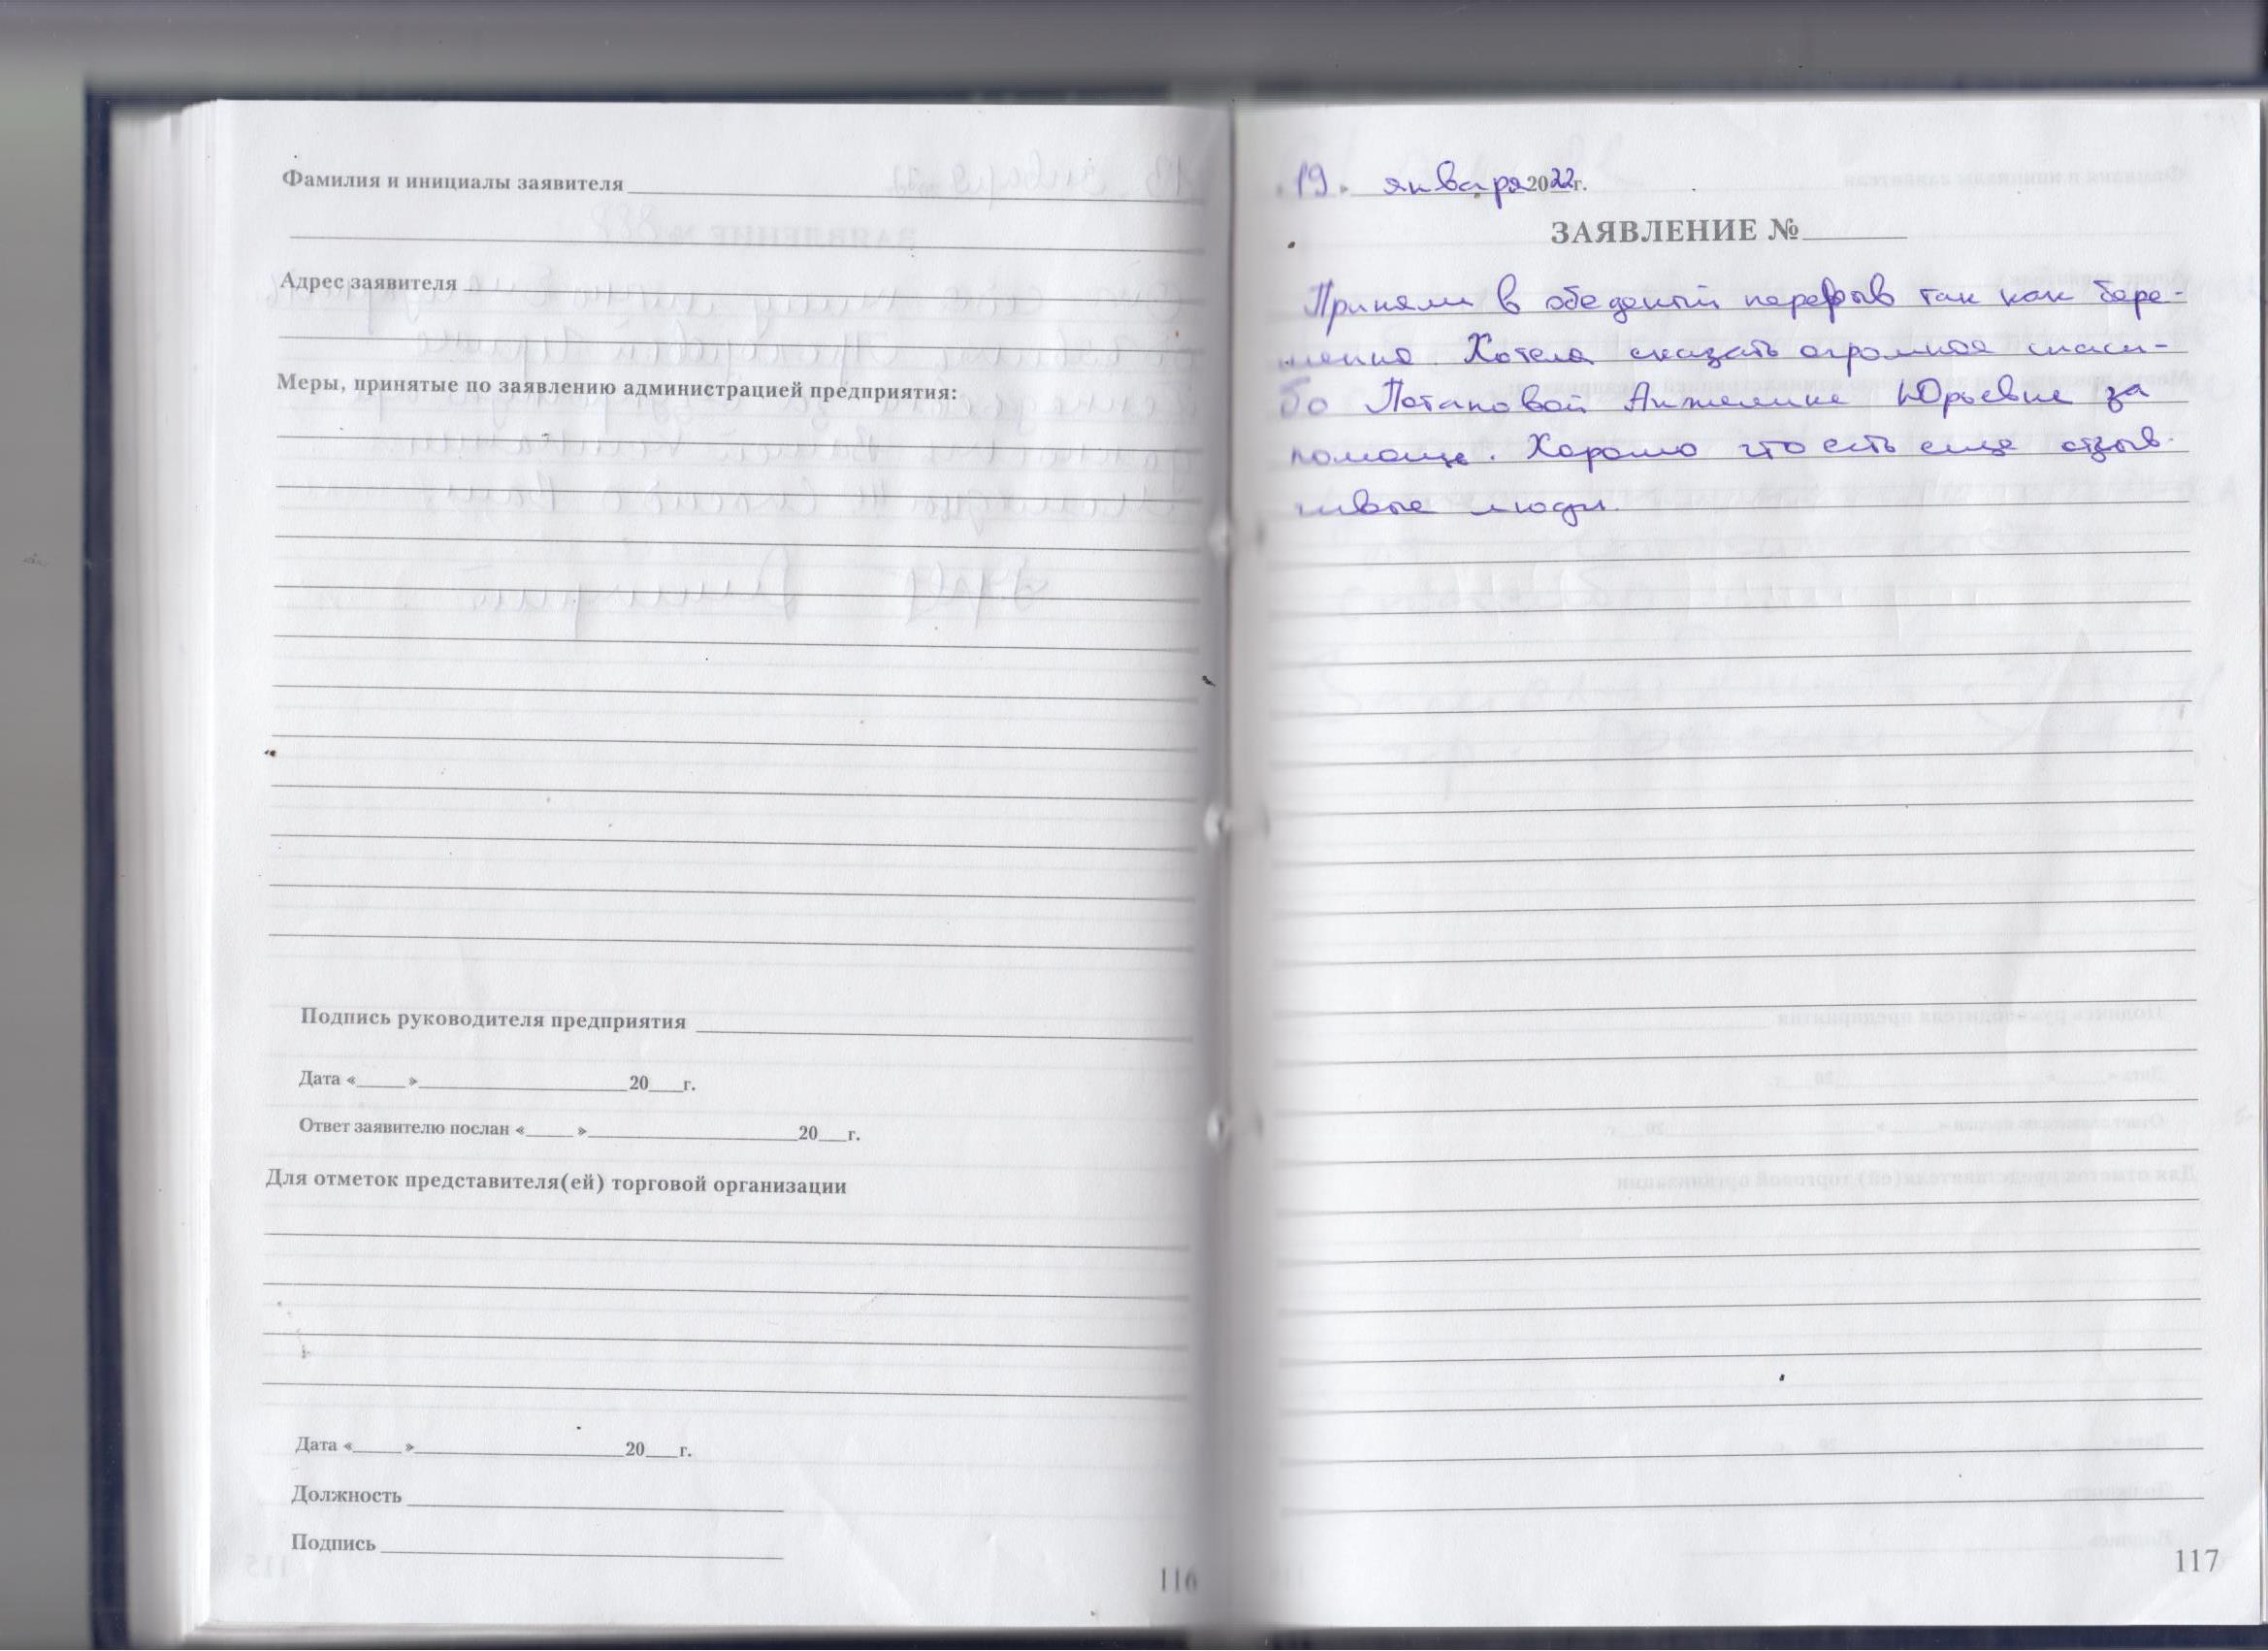 Фамилия и инициалы заявителя
Адрес заявителя
Меры, принятые по заявлению администрацией предприятия:
Подпись руководителя предприятия
Дата «____»____________20___г.
Ответ заявителю послан «____»____________20___г.
Для отметок представителя(ей) торговой организации
Дата «____»____________20___г.
Должность
Подпись
116
19. января 2022г.
ЗАЯВЛЕНИЕ №
Приняли в обеденый перерыв так как бере-
менна. Хотела сказать огромное спаси-
бо Потаповой Анжелике Юрьевне за
помощь. Хорошо что есть еще отзыв-
чивые люди.
117